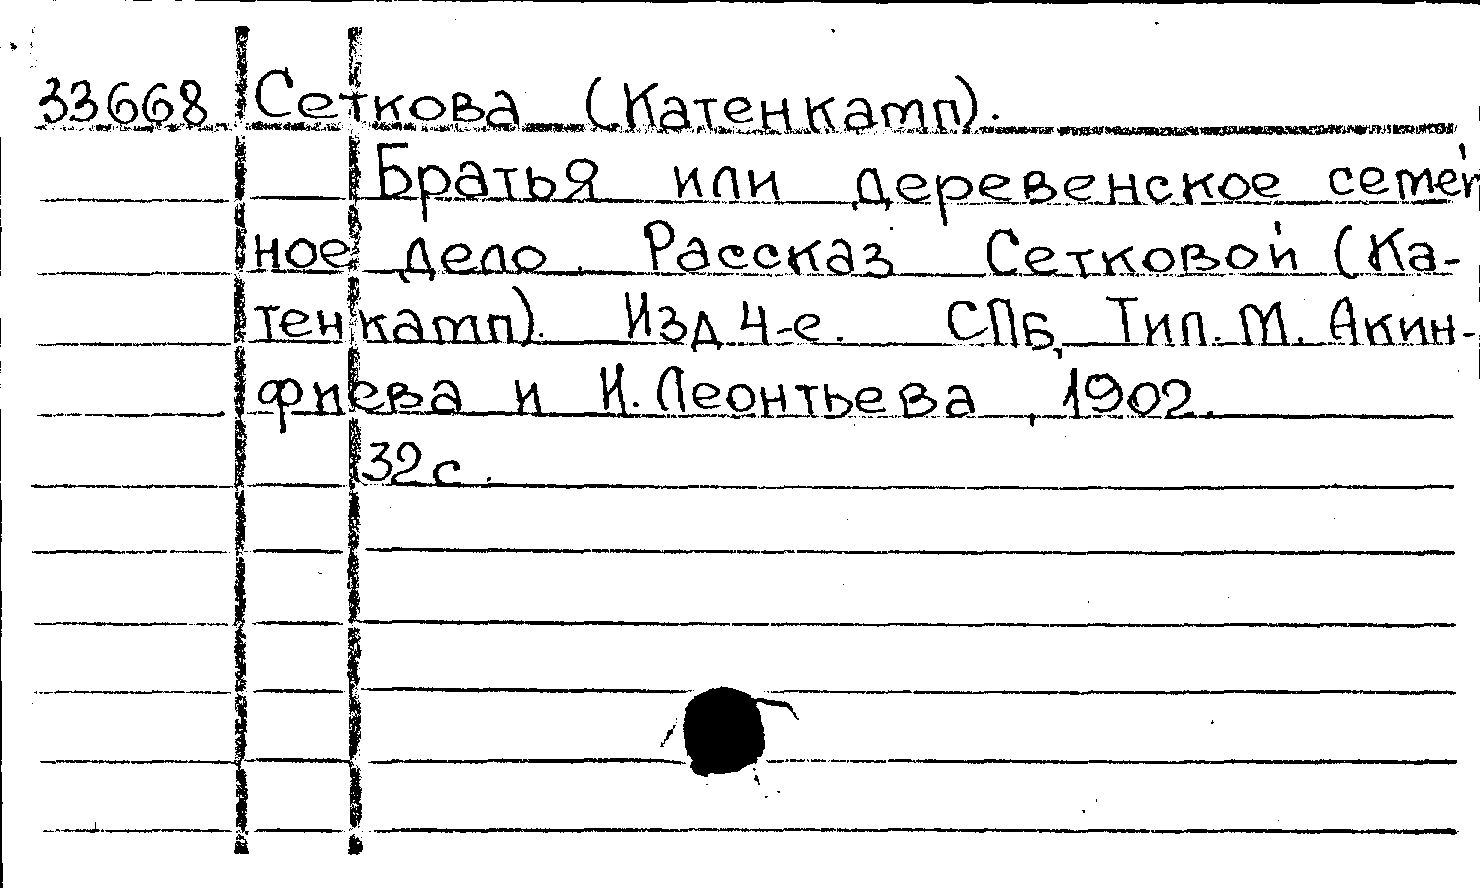 33668 Сеткова (Катенкамп).
Братья или деревенское семей
ное дело. Рассказ Сетковой (Ка-
тенкамп). Изд. 4-е. СПб, Тип. М. Акин-
фиева и И. Леонтьева, 1902.
32 с.